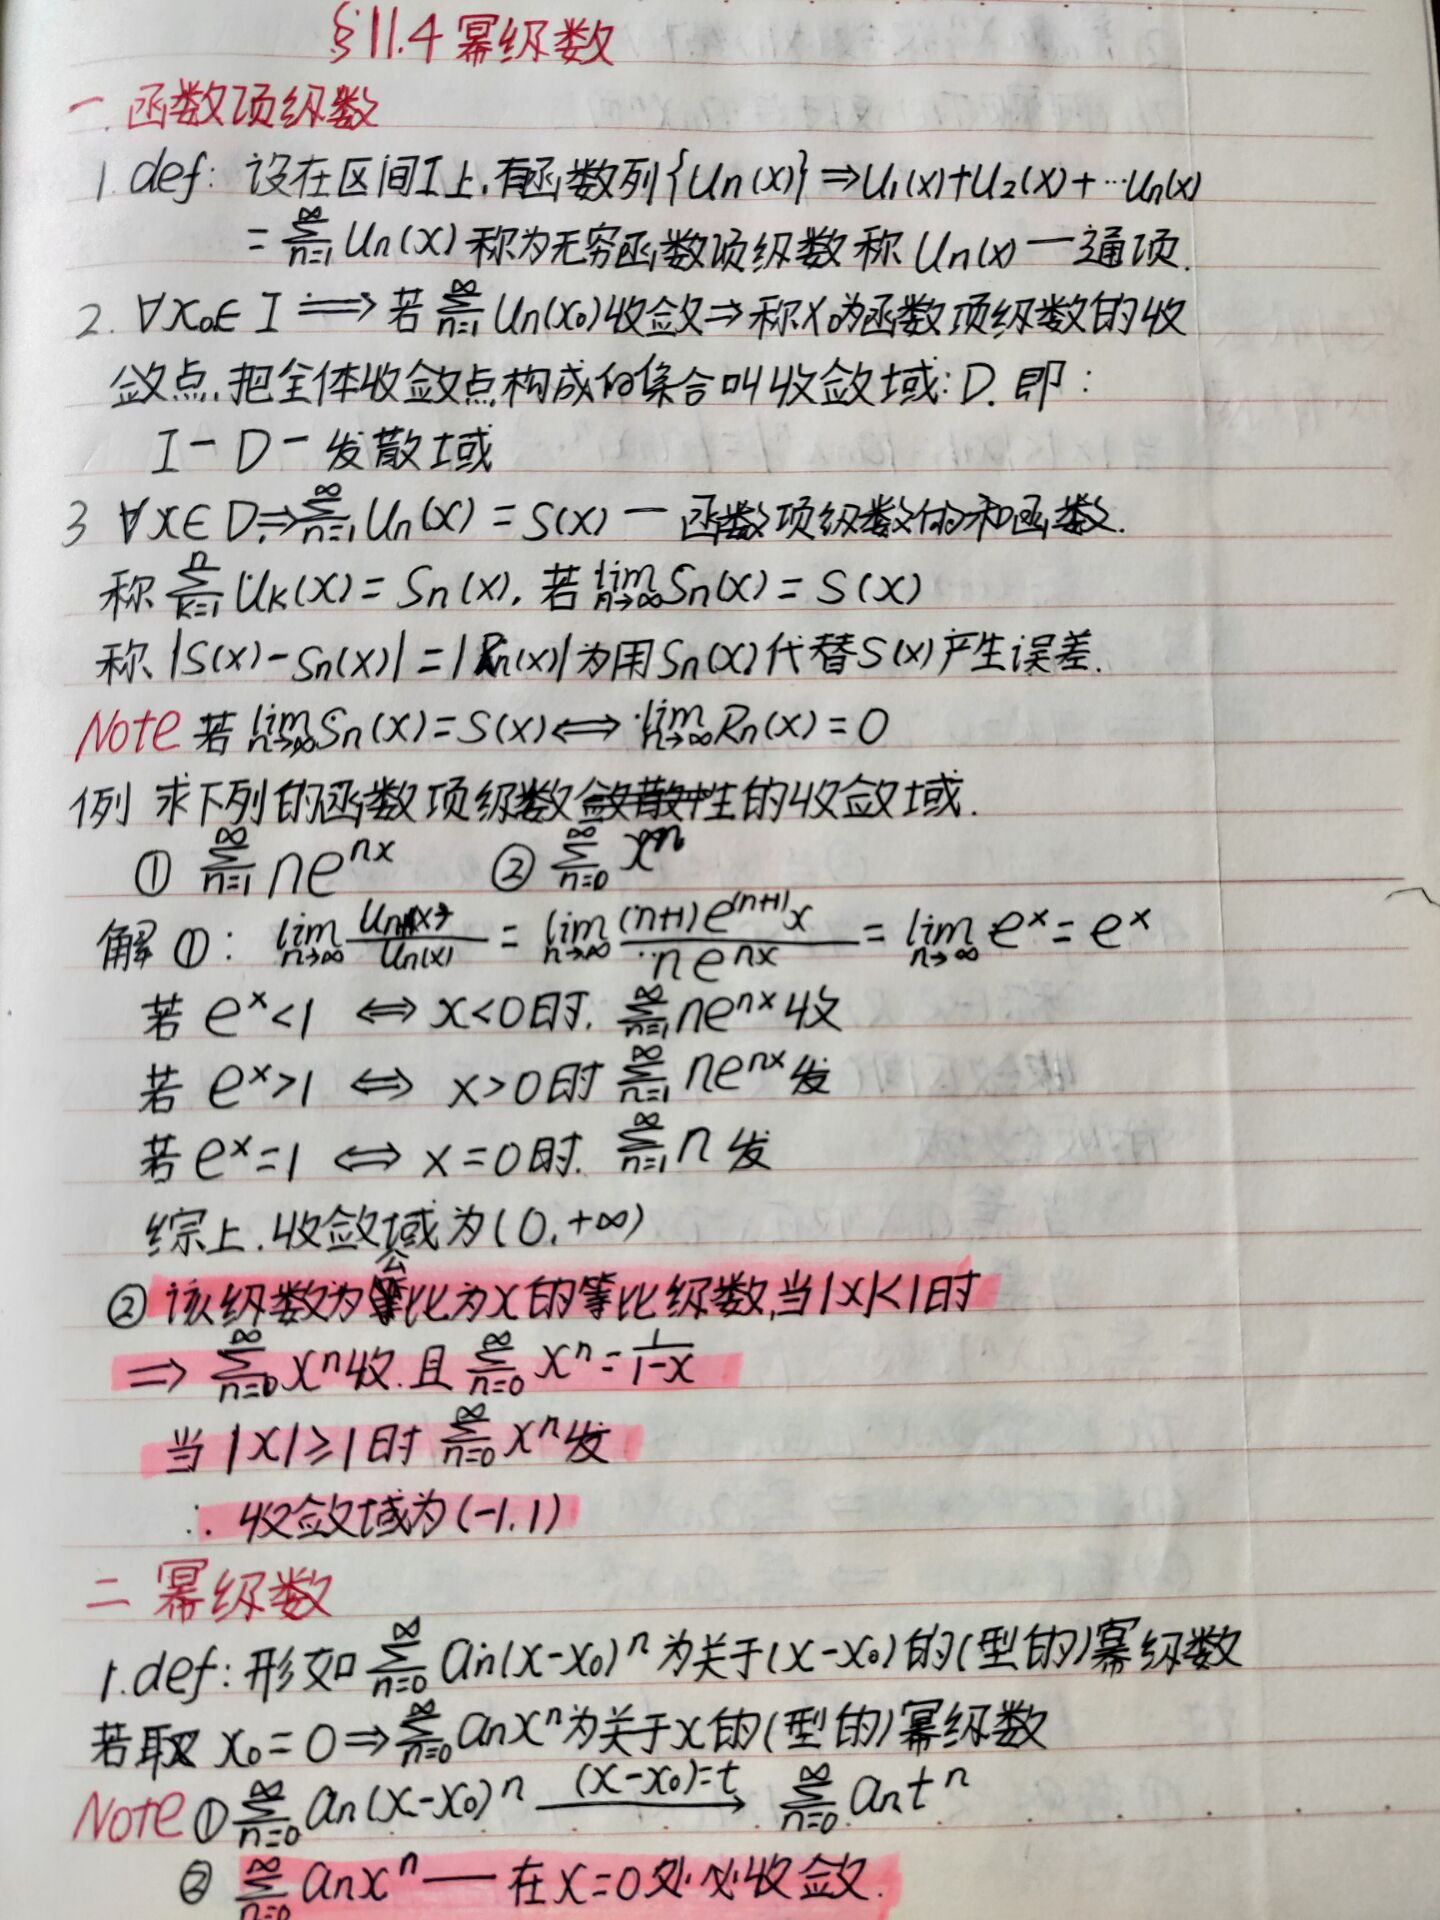 §11.4 幂级数
一.函数项级数
1. def: 设在区间I上.有函数列{Un(x)}⇒U₁(x)+U₂(x)+…Un(x)
= ∑_{n=1}^∞ Un(x) 称为无穷函数项级数 称 Un(x) — 通项.
2. ∀x₀∈I ⟹ 若 ∑_{n=1}^∞ Un(x₀)收敛⇒称x₀为函数项级数的收
敛点.把全体收敛点构成的集合叫收敛域:D. 即:
I - D - 发散域
3 ∀x∈D.⇒∑_{n=1}^∞ Un(x) = S(x) — 函数项级数的和函数.
称 ∑_{k=1}^n Uk(x) = Sn(x), 若 lim_{n→∞} Sn(x) = S(x)
称 |S(x)-Sn(x)| = |Rn(x)| 为用Sn(x)代替S(x)产生误差.
Note 若 lim_{n→∞} Sn(x)=S(x) ⟺ lim_{n→∞} Rn(x)=0
例 求下列的函数项级数敛散性的收敛域.
① ∑_{n=1}^∞ ne^{nx} ② ∑_{n=0}^∞ xⁿ
解 ①: lim_{n→∞} U_{n+1}(x)/Un(x) = lim_{n→∞} (n+1)e^{(n+1)x}/ne^{nx} = lim_{n→∞} eˣ = eˣ
若 eˣ<1 ⟺ x<0时. ∑_{n=1}^∞ ne^{nx} 收
若 eˣ>1 ⟺ x>0时 ∑_{n=1}^∞ ne^{nx} 发
若 eˣ=1 ⟺ x=0时. ∑_{n=1}^∞ n 发
综上.收敛域为(0,+∞)
② 该级数为公比为x的等比级数,当|x|<1时
⇒ ∑_{n=0}^∞ xⁿ收.且 ∑_{n=0}^∞ xⁿ = 1/(1-x)
当|x|≥1时 ∑_{n=0}^∞ xⁿ发
∴ 收敛域为(-1,1)
二 幂级数
1.def: 形如 ∑_{n=0}^∞ an(x-x₀)ⁿ 为关于(x-x₀)的(型的)幂级数
若取 x₀=0⇒∑_{n=0}^∞ anxⁿ为关于x的(型的)幂级数
Note ① ∑_{n=0}^∞ an(x-x₀)ⁿ —(x-x₀)=t→ ∑_{n=0}^∞ antⁿ
② ∑_{n=0}^∞ anxⁿ — 在x=0处必收敛.